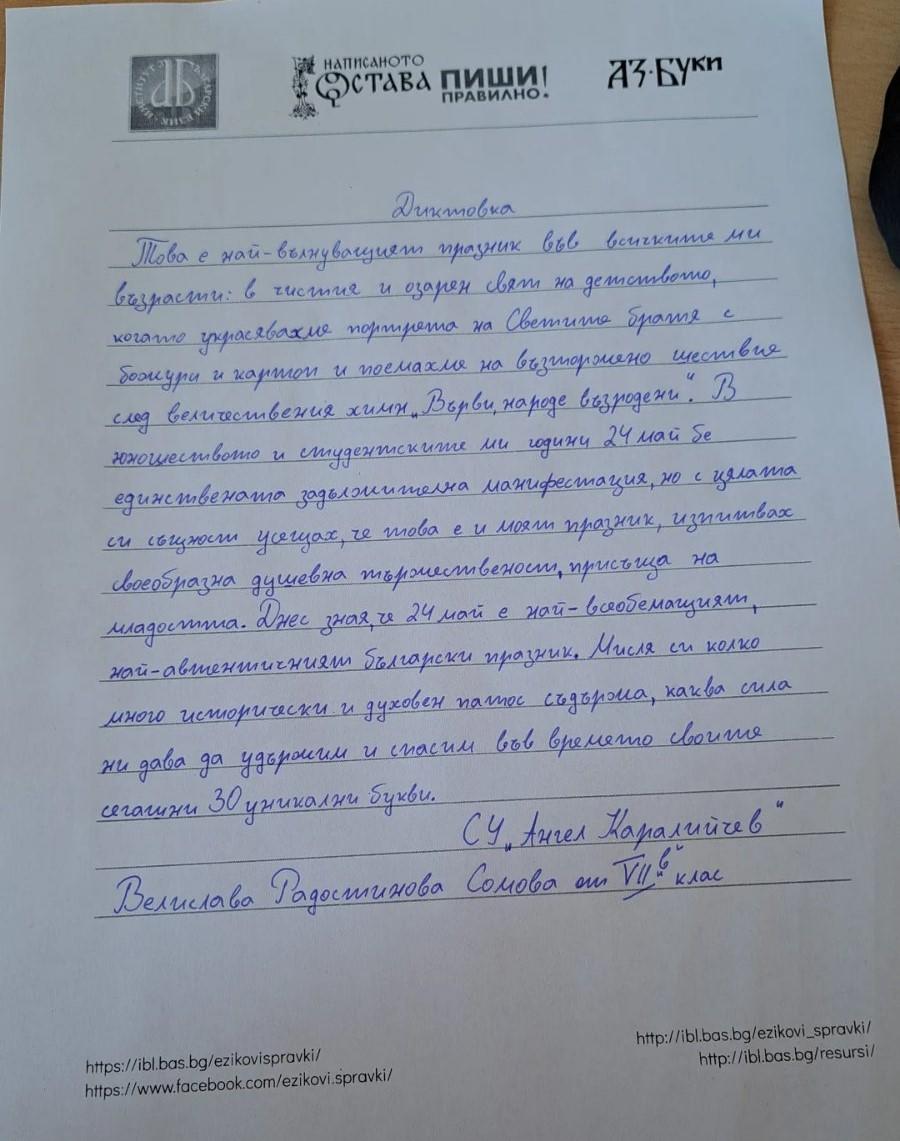 ИНСТИТУТ ЗА БЪЛГАРСКИ ЕЗИК
НАПИСАНОТО
ОСТАВА
ПИШИ
ПРАВИЛНО!
АЗ·БУКИ
Диктовка
Това е най-вълнуващият празник във всичките ми
възрасти: в чистия и озарен свят на детството,
когато украсявахме портрета на Светите братя с
божури и картоп и поемахме на възторжено шествие
след величествения химн „Върви, народе възродени". В
юношеството и студентските ми години 24 май бе
единствената задължителна манифестация, но с цялата
си същност усещах, че това е и моят празник, изпитвах
своеобразна душевна тържественост, присъща на
младостта. Днес зная, че 24 май е най-всеобемащият,
най-автентичният български празник. Мисля си колко
много исторически и духовен патос съдържа, каква сила
ни дава да удържим и спасим във времето своите
сегашни 30 уникални букви.
СУ „Ангел Каралийчев"
Велислава Радостинова Сомова от VII „в" клас
https://ibl.bas.bg/ezikovispravki/
https://www.facebook.com/ezikovi.spravki/
http://ibl.bas.bg/ezikovi_spravki/
http://ibl.bas.bg/resursi/